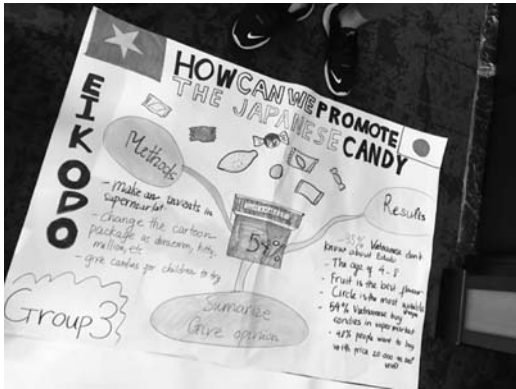 HOW CAN WE PROMOTE
THE JAPANESE CANDY
EIKODO
Methods
- make an events in
supermarket
- change the cartoon
package as doraemon, kitty,
- give candies for children to try
54%
Results
Vietnamese don't
know about
- The age of 4 - 8
- Fruit is the best flavour
- Circle is the most suitable
shape
- 54% Vietnamese buy
candies in supermarket
people want to buy
with price 20.000
Sumarize
Give opinion
Group 3